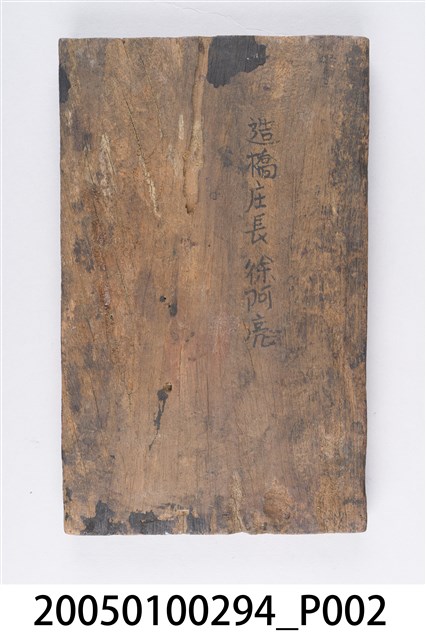 造橋庄長徐阿亮
20050100294_P002